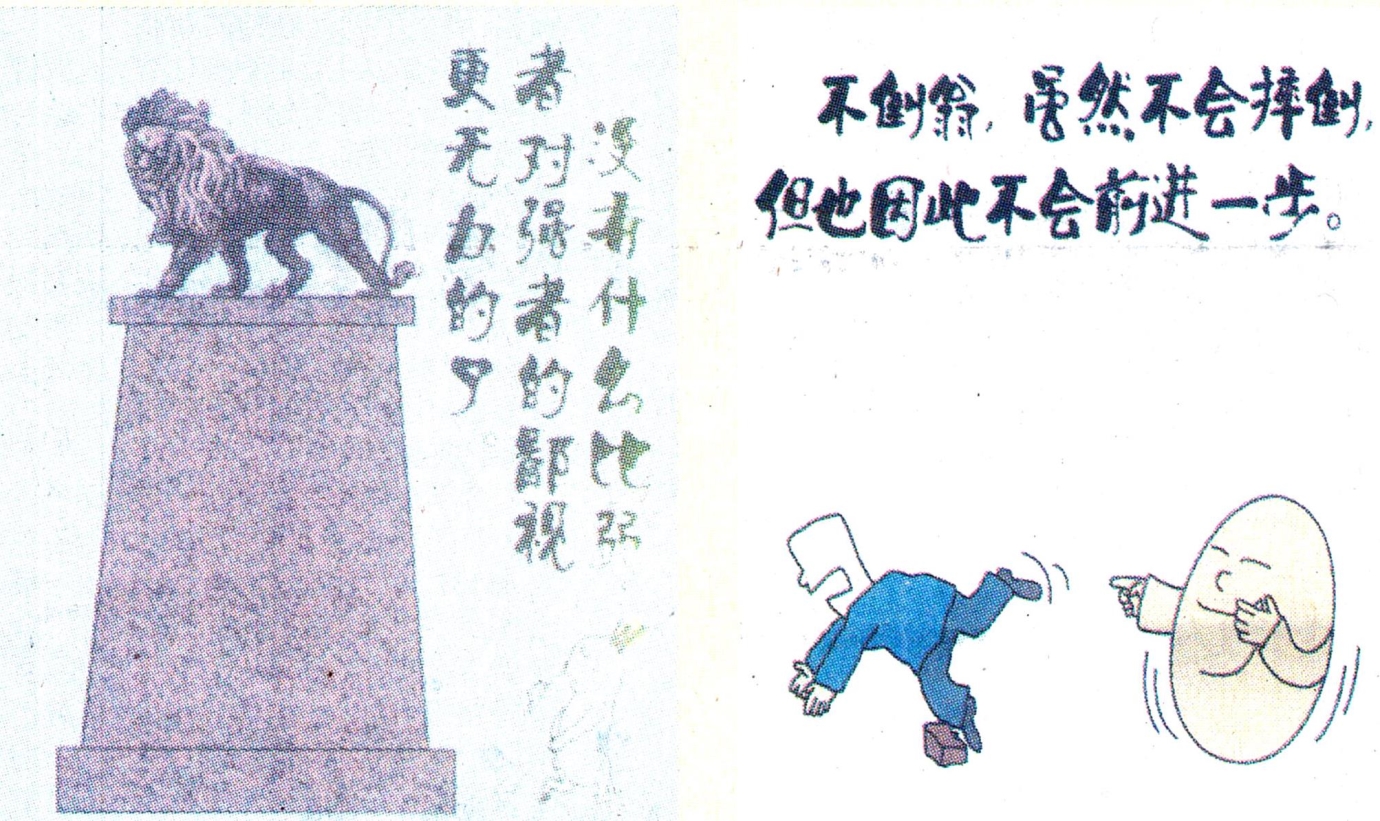 没有什么比弱
者对强者的鄙视
更无力的了
不倒翁，虽然不会摔倒，
但也因此不会前进一步。